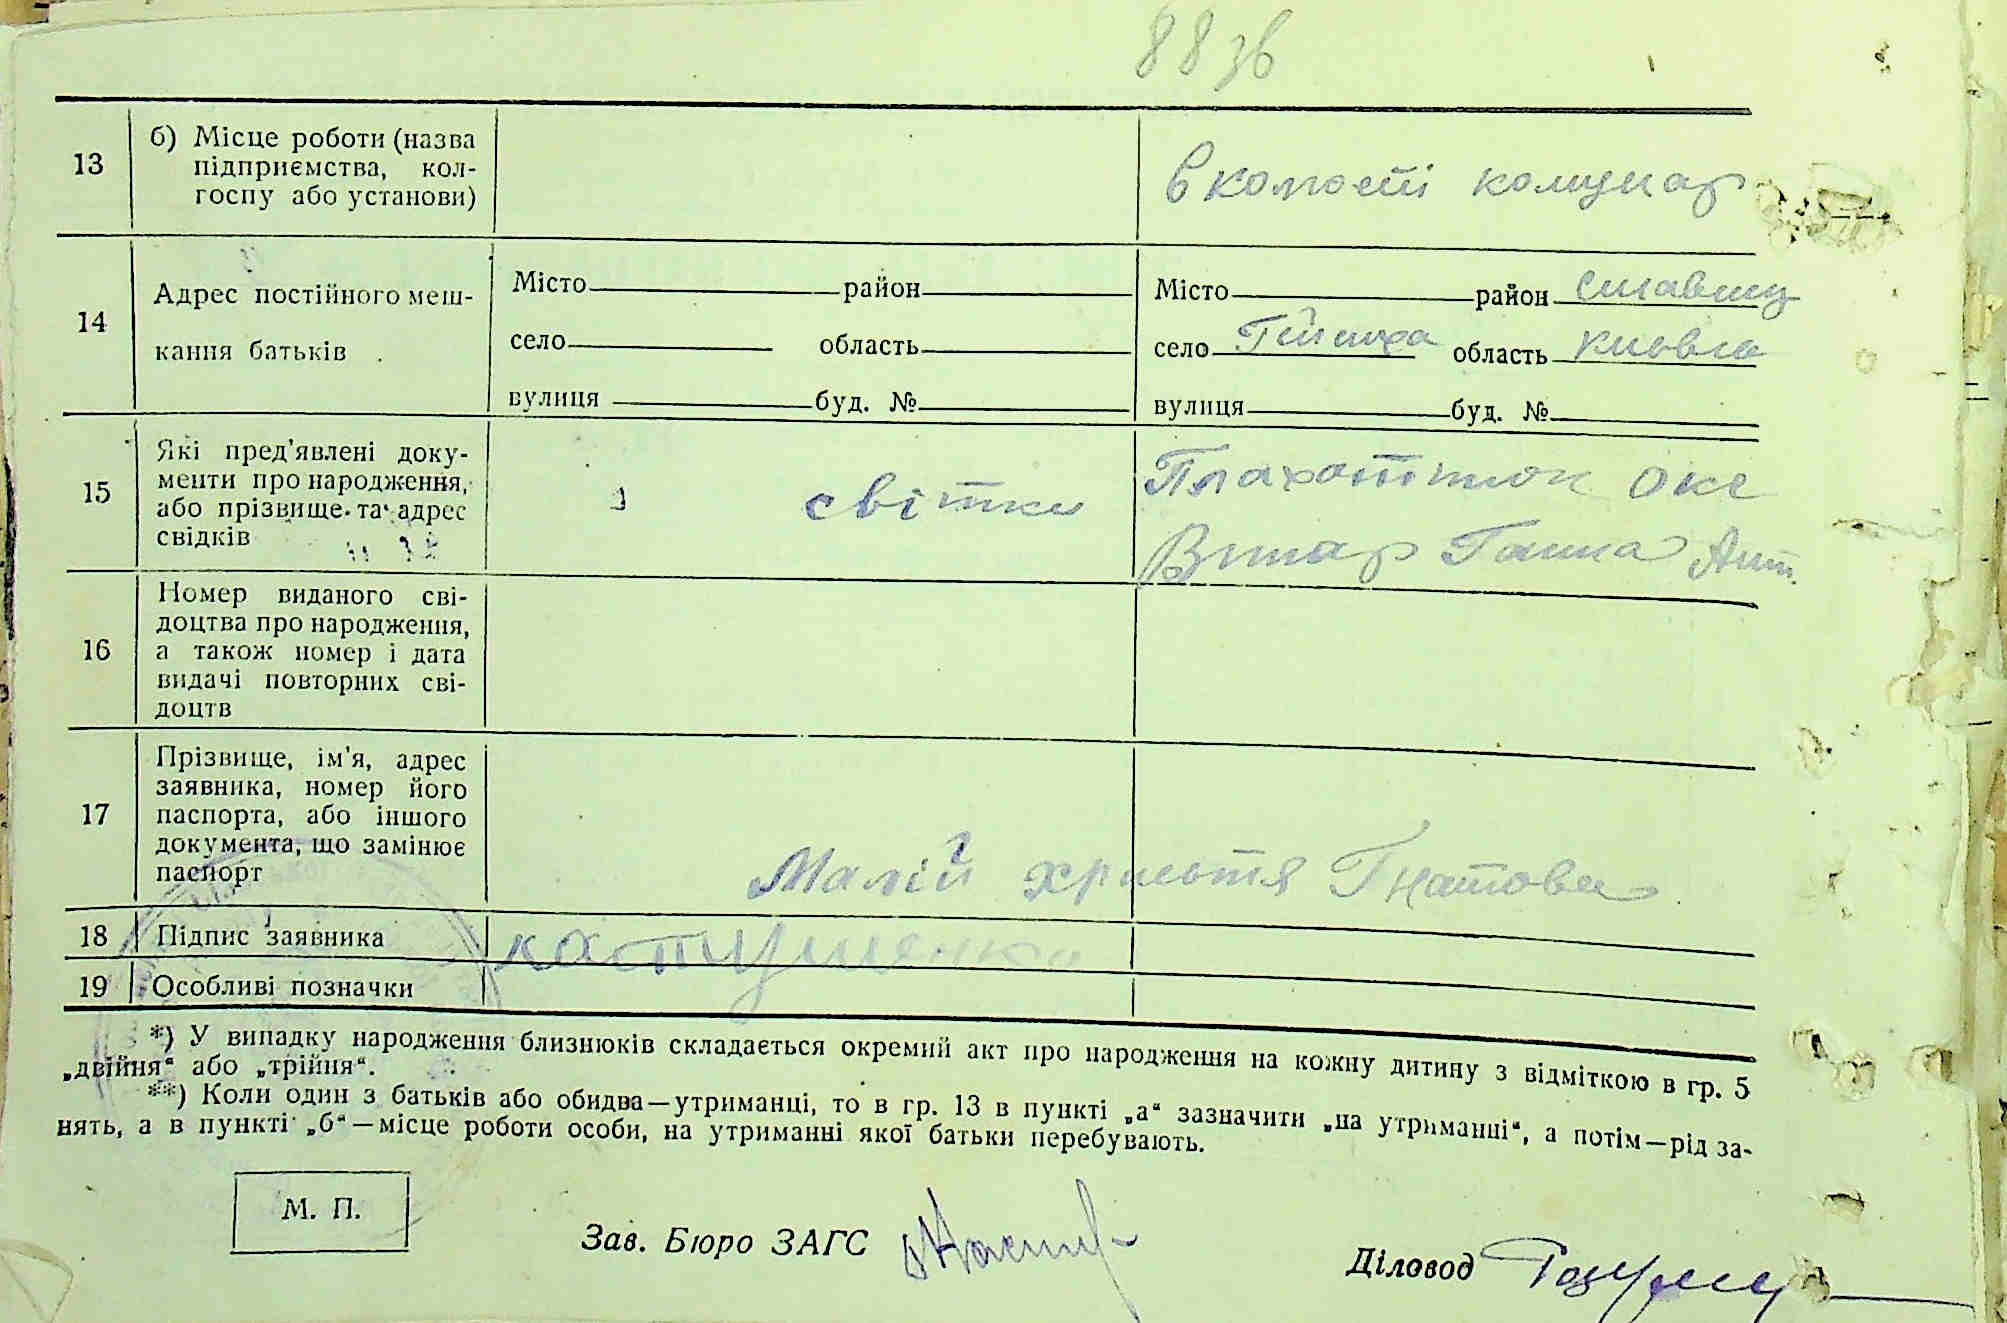 88 зв
13
б) Місце роботи (назва
підприємства, кол-
госпу або установи)
комунар
14
Адрес постійного меш-
кання батьків
Місто район
село область
вулиця буд. №
Місто район
село область
вулиця буд. №
15
Які пред'явлені доку-
менти про народження,
або прізвище та адрес
свідків
світки
Гапка Ант.
16
Номер виданого сві-
доцтва про народження,
а також номер і дата
видачі повторних сві-
доцтв
17
Прізвище, ім'я, адрес
заявника, номер його
паспорта, або іншого
документа, що замінює
паспорт
Малій христя Гнатовна
18 Підпис заявника
19 Особливі позначки
*) У випадку народження близнюків складається окремий акт про народження на кожну дитину з відміткою в гр. 5
„двійня“ або „трійня“.
**) Коли один з батьків або обидва—утриманці, то в гр. 13 в пункті „а“ зазначити „на утриманні“, а потім—рід за-
нять, а в пункті „б“—місце роботи особи, на утриманні якої батьки перебувають.
М. П.
Зав. Бюро ЗАГС
Діловод